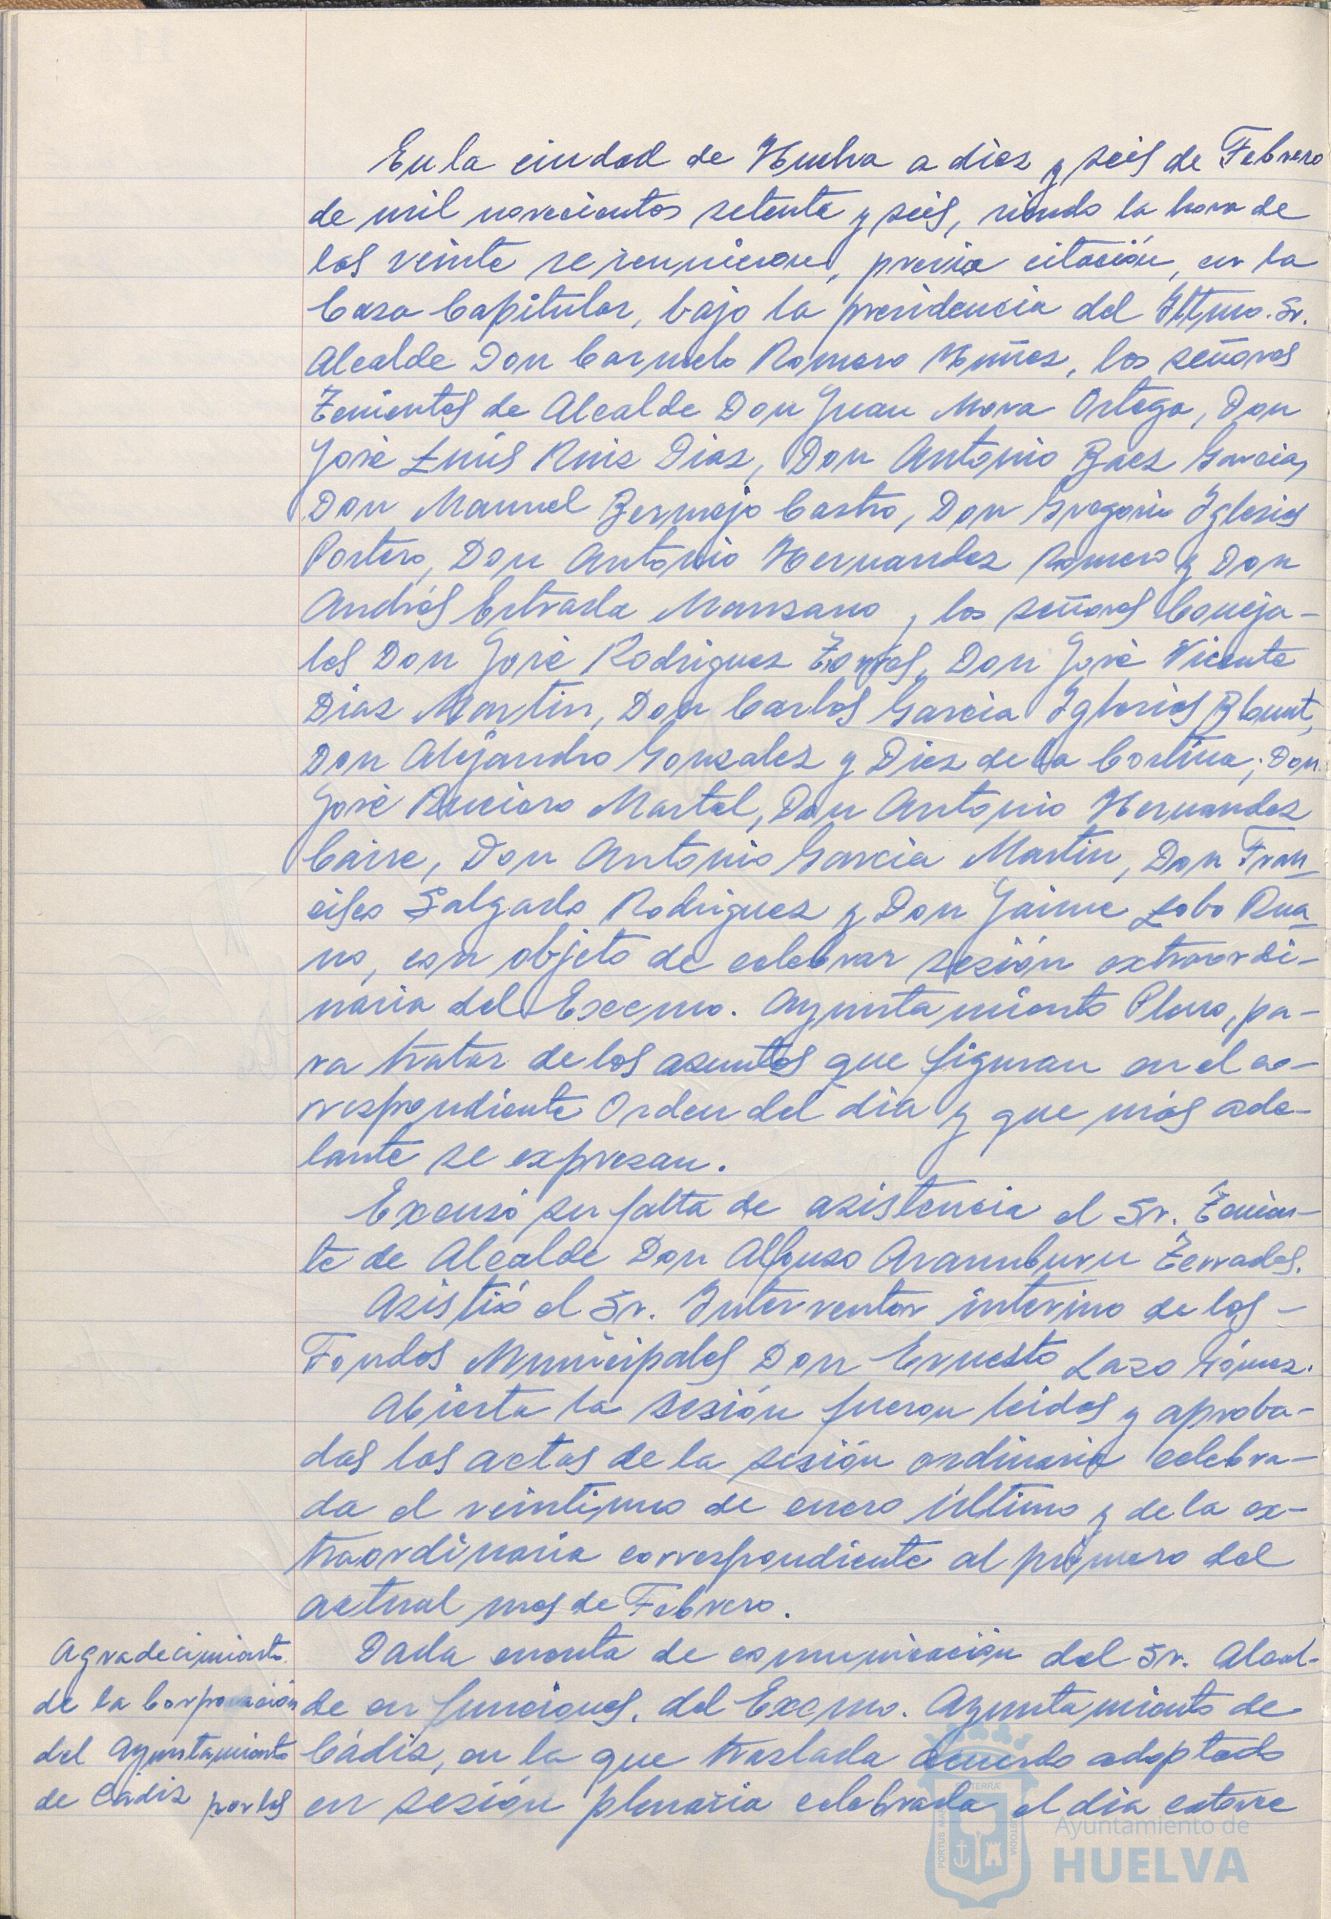 En la ciudad de Huelva a diez y seis de Febrero
de mil novecientos setenta y seis, siendo la hora de
las veinte se reunieron, previa citación, en la
Casa Capitular, bajo la presidencia del Iltmo. Sr.
Alcalde Don Carmelo Romero Núñez, los señores
Tenientes de Alcalde Don Juan Mora Ortega, Don
José Luís Ruiz Díaz, Don Antonio Baez Garcia,
Don Manuel Bermejo Castro, Don Gregorio Iglesias
Portero, Don Antonio Hernandez Romero y Don
Andrés Estrada Manzano, los señores Conceja-
les Don José Rodriguez Torres, Don José Vicente
Diaz Martin, Don Carlos Garcia Iglesias Blount,
Don Alejandro Gonzalez y Diez de la Cortina; Don
José Ruciero Martel, Don Antonio Hernandez
Caire, Don Antonio Garcia Martin, Don Fran
cisco Salgado Rodriguez y Don Jaime Lobo Rua
no, con objeto de celebrar sesión extraordi-
naria del Excmo. Ayuntamiento Pleno, pa-
ra tratar de los asuntos que figuran en el co-
rrespondiente Orden del dia y que más ade-
lante se expresan.
Excusó su falta de asistencia el Sr. Tenien-
te de Alcalde Don Alfonso Aramburu Terrades.
Asistió el Sr. Interventor interino de los-
Fondos Municipales Don Ernesto Lazo Gómez.
Abierta la sesión fueron leidas y aproba-
das las actas de la sesión ordinaria celebra-
da el veintiuno de enero último y de la ex-
traordinaria correspondiente al primero del
actual mes de Febrero.
Agradecimiento
de la Corporación
del Ayuntamiento
de Cádiz por los
Dada cuenta de comunicación del Sr. Alcal-
de en funciones, del Excmo. Ayuntamiento de
Cádiz, en la que traslada acuerdo adoptado
en sesión plenaria celebrada el dia catorce
Ayuntamiento de
HUELVA